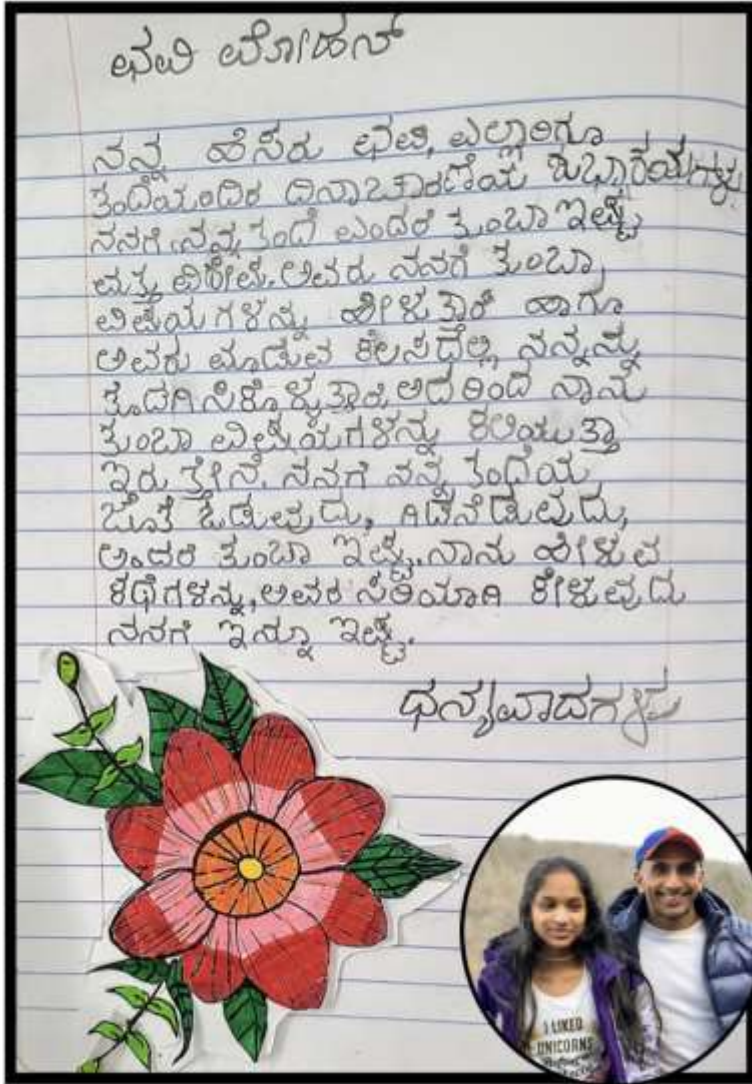 ಛವಿ ಮೋಹನ್
ನನ್ನ ಹೆಸರು ಛವಿ, ಎಲ್ಲಾರಿಗೂ
ತಂದೆಯಂದಿರ ದಿನಾಚಾರಣೆಯ ಶುಭಾಶಯಗಳು.
ನನಗೆ ನನ್ನ ತಂದೆ ಎಂದರೆ ತುಂಬಾ ಇಷ್ಟ
ಮತ್ತು ವಿಶೇಷ. ಅವರು ನನಗೆ ತುಂಬಾ
ವಿಷಯಗಳನ್ನು ಹೇಳುತ್ತಾರೆ ಹಾಗೂ
ಅವರು ಮಾಡುವ ಕೆಲಸದಲ್ಲಿ ನನ್ನನ್ನು
ತೊಡಗಿಸಿಕೊಳ್ಳುತ್ತಾರೆ, ಅದರಿಂದ ನಾನು
ತುಂಬಾ ವಿಷಯಗಳನ್ನು ಕಲಿಯುತ್ತಾ
ಇರುತ್ತೇನೆ. ನನಗೆ ನನ್ನ ತಂದೆಯ
ಜೊತೆ ಓಡುವುದು, ಗಿಡನೆಡುವುದು,
ಅಂದರೆ ತುಂಬಾ ಇಷ್ಟ. ನಾನು ಹೇಳುವ
ಕಥೆಗಳನ್ನು, ಅವರ ಸರಿಯಾಗಿ ಕೇಳುವುದು
ನನಗೆ ಇನ್ನೂ ಇಷ್ಟ.
ಧನ್ಯವಾದಗಳು
I LIKED
UNICORNS